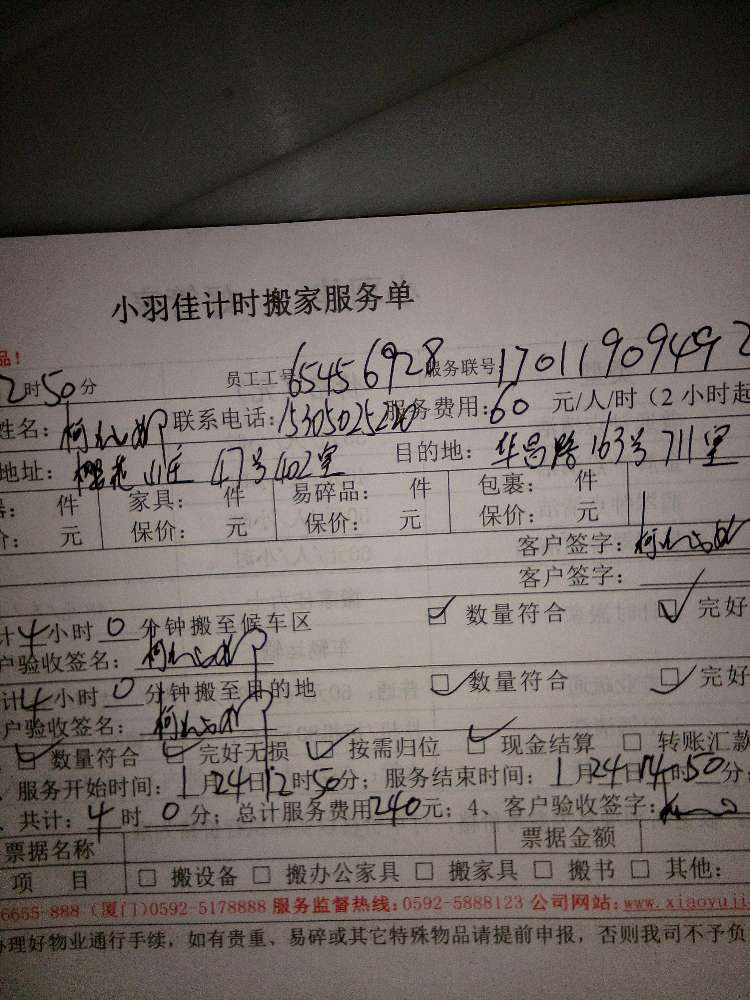 小羽佳计时搬家服务单
品！
2时50分 员工工号65456928 服务联号:17011909492
姓名： 联系电话:15305025220 服务费用:60 元/人/时（2 小时起
地址： 樱花山庄 47号402室 目的地： 华昌路163号711室
： 件 家具： 件 易碎品： 件 包裹： 件
价： 元 保价： 元 保价： 元 保价： 元
客户签字：
客户签字：
计4小时 0 分钟搬至候车区 ☑ 数量符合 ☑ 完好
户验收签名：
计4小时 0 分钟搬至目的地 ☑ 数量符合 ☑ 完好
户验收签名：
☑ 数量符合 ☑ 完好无损 ☑ 按需归位 ☑ 现金结算 □ 转账汇款
、服务开始时间：1月24日12时50分；服务结束时间：1月24日14时50分；
、共计：4 时 0 分；总计服务费用240元；4、客户验收签字：
票据名称 票据金额
项 目 □ 搬设备 □ 搬办公家具 □ 搬家具 □ 搬书 □ 其他：
6655-888 (厦门)0592-5178888 服务监督热线:0592-5888123 公司网站:www.xiaoyuji
办理好物业通行手续，如有贵重、易碎或其它特殊物品请提前申报，否则我司不予负